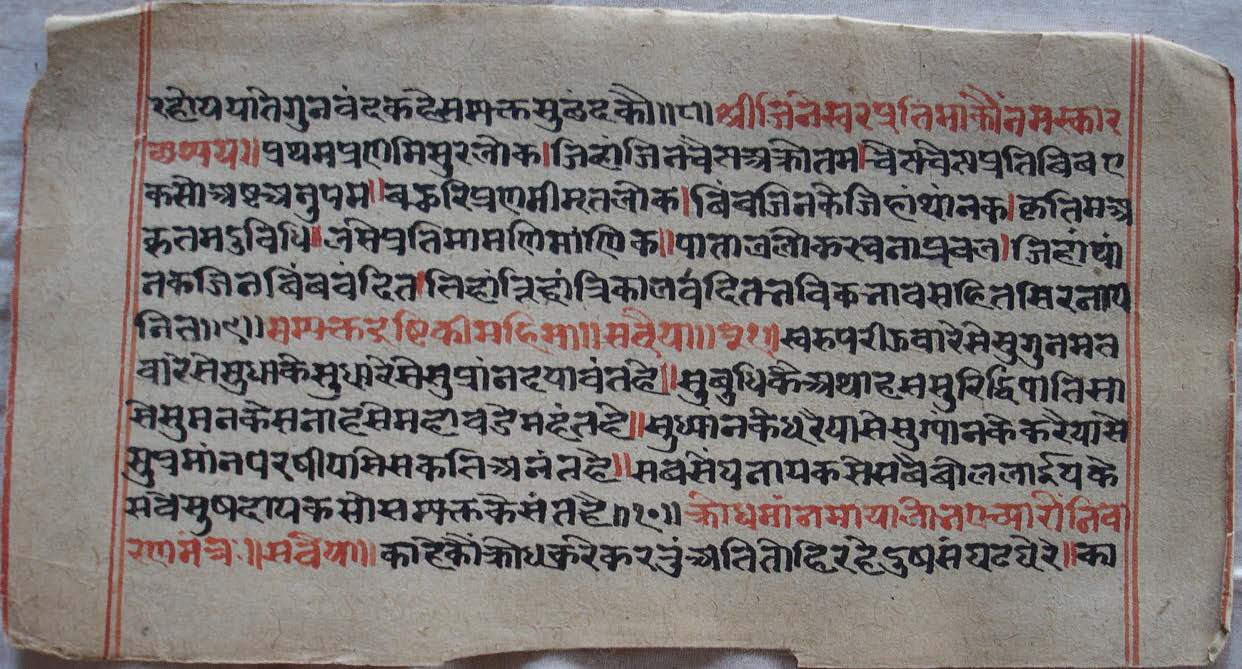 रहोय यातेगुनवंदकहैसमक्तसुछंदकौ॥८॥श्रीजिनेस्वरप्रतिमांकौंनमस्कार
छप्पय॥प्रथमप्रणमिसुरलोक।जिहांजिनचैत्यअक्रीतम।चैत्यचैत्यप्रतिबिंबए
कसौअष्टअनुपम॥बहुरिप्रणमीमृतलोक।बिंबजिनकैजिहांथांनक।कृतिमअ
कृतमदुविधि।लसेप्रतिमामणिमांणिक॥पाताललोकरचनाप्रबल।जिहांथां
नकजिनबिंबवंदित।तिहांत्रिकालवंदित
नित॥९॥सम्यकदृष्टिकीमहिमा॥सवैया॥२३॥स्वरुपरीऊवारेसेसुगुनमत
वारेसेसुधाकेसुधारेसेसुप्रांनदयावंतहै॥सुबुधिकैअथाहससुरिद्विपातिसा
सेसुमनकेसनाहसेमहाबडेमहंतहै॥सुध्यानकेधरैयासेसुग्यांनकेकरैयासे
सुप्रमांनपरषीयासेसकतिअनंतहै॥सबसंघनायकसेसबैबोललाईयकै
सबैसुषदायकसेसम्यक्तकेसंतहै॥१०॥क्रोधमांनमायालोभएच्यारोंनिवा
रणमंत्र॥सवैया॥काहेकौंक्रोधकरेकरतुंअतितोहिरहैदुषसंघटघेरे॥का